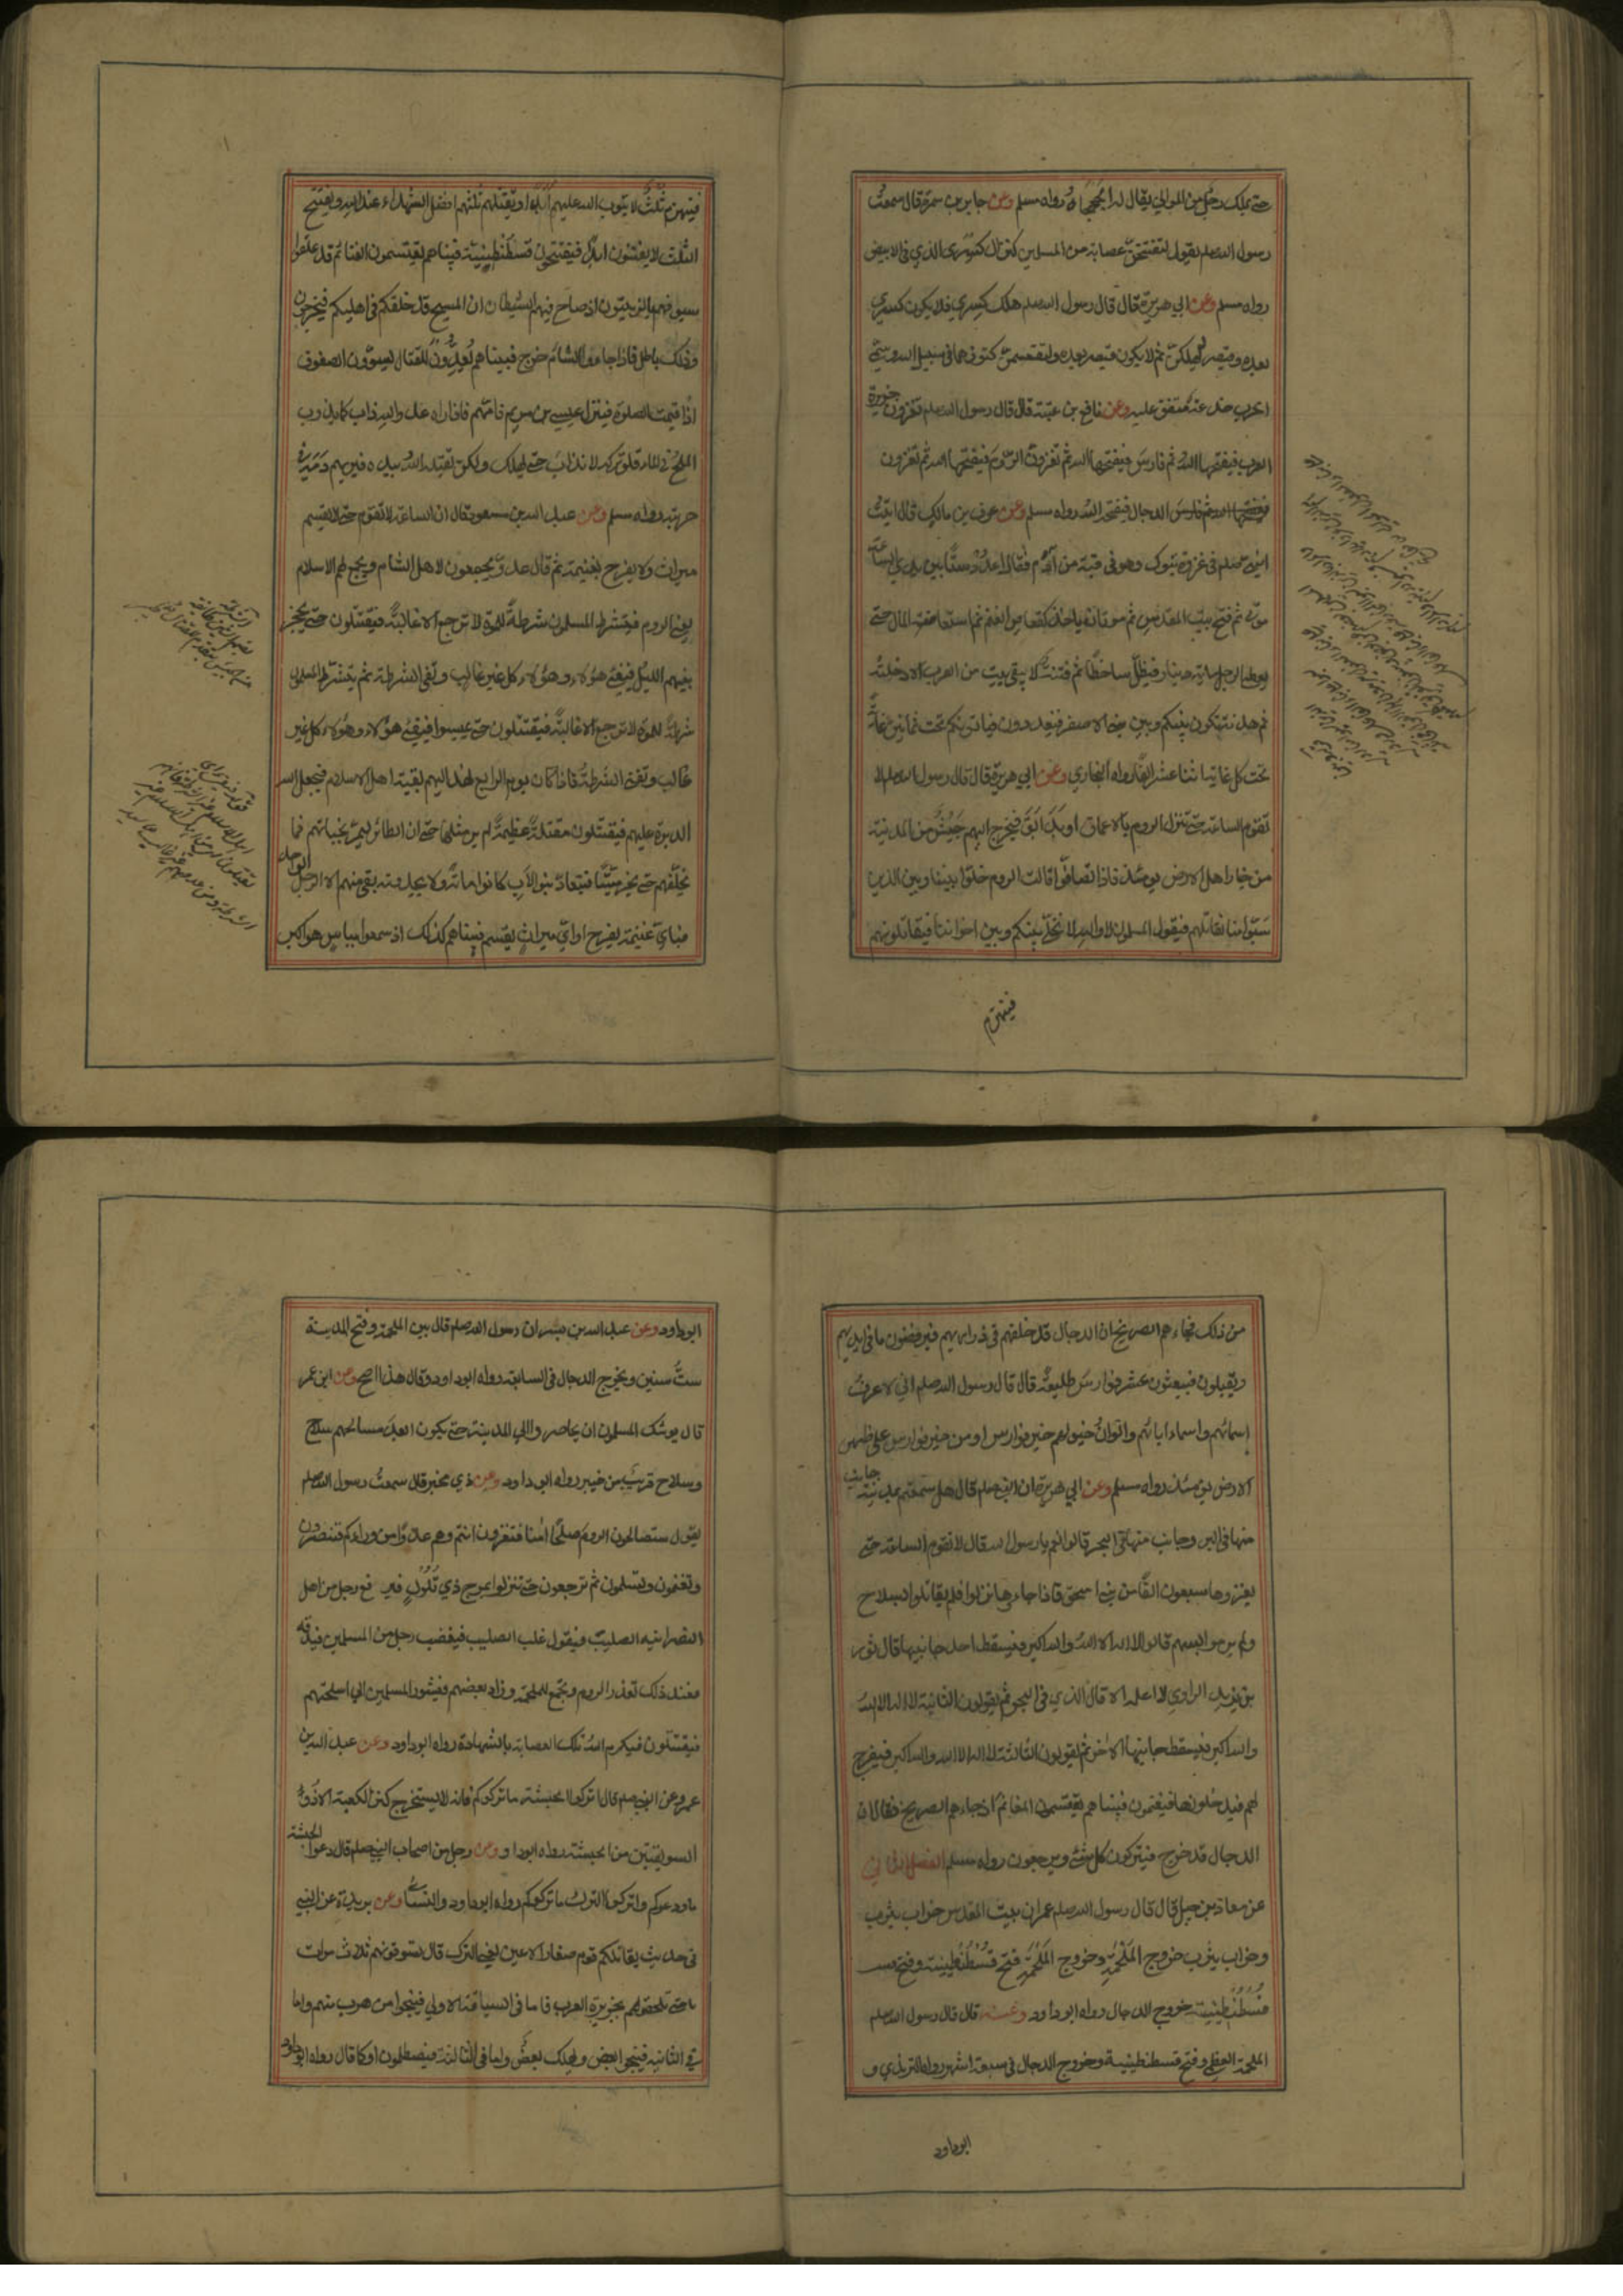 حتى يملك رجل من الموالي يقال له الجهجاه رواه مسلم وعن جابر بن سمرة قال سمعت
رسول الله صلعم يقول لتفتتحن عصابة من المسلمين كنز آل كسرى الذي في الابيض
رواه مسلم وعن ابي هريرة قال قال رسول الله صلعم هلك كسرى فلا يكون كسرى
بعده وقيصر ليهلكن ثم لا يكون قيصر بعده ولتقسمن كنوزهما في سبيل الله وسمى
الحرب خدعة متفق عليه وعن نافع بن عتبة قال قال رسول الله صلعم تغزون جزيرة
العرب فيفتحها الله ثم فارس فيفتحها الله ثم تغزون الروم فيفتحها الله ثم تغزون
الدجال فيفتحه الله رواه مسلم وعن عوف بن مالك قال اتيت
النبي صلعم في غزوة تبوك وهو في قبة من ادم فقال اعدد ستا بين يدي الساعة
موتي ثم فتح بيت المقدس ثم موتان ياخذ فيكم كقعاص الغنم ثم استفاضة المال حتى
يعطى الرجل مائة دينار فيظل ساخطا ثم فتنة لا يبقى بيت من العرب الا دخلته
ثم هدنة تكون بينكم وبين بني الاصفر فيغدرون فياتونكم تحت ثمانين غاية
تحت كل غاية اثنا عشر الفا رواه البخاري وعن ابي هريرة قال قال رسول الله صلعم لا
تقوم الساعة حتى تنزل الروم بالاعماق او بدابق فيخرج اليهم جيش من المدينة
من خيار اهل الارض يومئذ فاذا تصافوا قالت الروم خلوا بيننا وبين الذين
سبوا منا نقاتلهم فيقول المسلمون لا والله لا نخلي بينكم وبين اخواننا فيقاتلونهم
فينهزم
فينهزم ثلث لا يتوب الله عليهم ابدا ويقتل ثلثهم افضل الشهداء عند الله ويفتتح
الثلث لا يفتنون ابدا فيفتتحون قسطنطينية فبينا هم يقتسمون الغنائم قد علقوا
سيوفهم بالزيتون اذ صاح فيهم الشيطان ان المسيح قد خلفكم في اهليكم فيخرجون
وذلك باطل فاذا جاءوا الشام خرج فبينا هم يعدون للقتال يسوون الصفوف
اذا قيمت الصلوة فينزل عيسى بن مريم فامهم فاذا راه عدو الله ذاب كما يذوب
الملح في الماء فلو تركه لانذاب حتى يهلك ولكن يقتله الله بيده فيريهم دمه في
حربته رواه مسلم وعن عبد الله بن مسعود قال ان الساعة لا تقوم حتى لا يقسم
ميراث ولا يفرح بغنيمة ثم قال عدو يجمعون لاهل الشام ويجمع لهم الاسلام
يعني الروم فيتشرط المسلمون شرطة للموت لا ترجع الا غالبة فيقتتلون حتى يحجز
بينهم الليل فيفيء هؤلاء وهؤلاء كل غير غالب وتفنى الشرطة ثم يتشرط المسلمون
شرطة للموت لا ترجع الا غالبة فيقتتلون حتى يمسوا فيفيء هؤلاء وهؤلاء كل غير
غالب وتفنى الشرطة فاذا كان يوم الرابع نهد اليهم بقية اهل الاسلام فيجعل الله
الدبرة عليهم فيقتتلون مقتلة عظيمة لم ير مثلها حتى ان الطائر ليمر بجنباتهم فما
يخلفهم حتى يخر ميتا فيتعاد بنو الاب كانوا مائة فلا يجدونه بقي منهم الا الرجل الواحد
فباي غنيمة يفرح او اي ميراث يقسم فبينا هم كذلك اذ سمعوا بباس هو اكبر
من ذلك فجاءهم الصريخ ان الدجال قد خلفهم في ذراريهم فيرفضون ما في ايديهم
ويقبلون فيبعثون عشر فوارس طليعة قال قال رسول الله صلعم اني لاعرف
اسمائهم واسماء ابائهم والوان خيولهم خير فوارس او من خير فوارس على ظهر
الارض يومئذ رواه مسلم وعن ابي هريرة ان النبي صلعم قال هل سمعتم بمدينة جانب
منها في البر وجانب منها في البحر قالوا نعم يا رسول الله قال لا تقوم الساعة حتى
يغزوها سبعون الفا من بني اسحق فاذا جاءوها نزلوا فلم يقاتلوا بسلاح
ولم يرموا بسهم قالوا لا اله الا الله والله اكبر فيسقط احد جانبيها قال ثور
بن يزيد الراوي لا اعلمه الا قال الذي في البحر ثم يقولون الثانية لا اله الا الله
والله اكبر فيسقط جانبها الاخر ثم يقولون الثالثة لا اله الا الله والله اكبر فيفرج
لهم فيدخلونها فيغنمون فبينا هم يقتسمون المغانم اذ جاءهم الصريخ فقال ان
الدجال قد خرج فيتركون كل شئ ويرجعون رواه مسلم الفصل الثاني
عن معاذ بن جبل قال قال رسول الله صلعم عمران بيت المقدس خراب يثرب
وخراب يثرب خروج الملحمة وخروج الملحمة فتح قسطنطينية وفتح
قسطنطينية خروج الدجال رواه ابو داود وعنه قال قال رسول الله صلعم
الملحمة العظمى وفتح قسطنطينية وخروج الدجال في سبعة اشهر رواه الترمذي و
ابو داود
ابو داود وعن عبد الله بن بسر ان رسول الله صلعم قال بين الملحمة وفتح المدينة
ست سنين ويخرج الدجال في السابعة رواه ابو داود وقال هذا اصح وعن ابن عمر
قال يوشك المسلمون ان يحاصروا الى المدينة حتى يكون ابعد مسالحهم سلاح
وسلاح قريب من خيبر رواه ابو داود وعن ذي مخبر قال سمعت رسول الله صلعم
يقول ستصالحون الروم صلحا امنا فتغزون انتم وهم عدوا من ورائكم فتنصرون
وتغنمون وتسلمون ثم ترجعون حتى تنزلوا بمرج ذي تلول فيرفع رجل من اهل
النصرانية الصليب فيقول غلب الصليب فيغضب رجل من المسلمين فيدقه
فعند ذلك تغدر الروم وتجمع للملحمة وزاد بعضهم فيثور المسلمون الى اسلحتهم
فيقتتلون فيكرم الله تلك العصابة بالشهادة رواه ابو داود وعن عبد الله بن
عمرو عن النبي صلعم قال اتركوا الحبشة ما تركوكم فانه لا يستخرج كنز الكعبة الا ذو
السويقتين من الحبشة رواه ابو داود وعن رجل من اصحاب النبي صلعم قال دعوا الحبشة
ما ودعوكم واتركوا الترك ما تركوكم رواه ابو داود والنسائي وعن بريدة عن النبي
في حديث يقاتلكم قوم صغار الاعين يعني الترك قال تسوقونهم ثلاث مرات
حتى تلحقوهم بجزيرة العرب فاما في السياقة الاولى فينجوا من هرب منهم واما
في الثانية فينجوا بعض ويهلك بعض واما في الثالثة فيصطلمون او كما قال رواه ابو داود